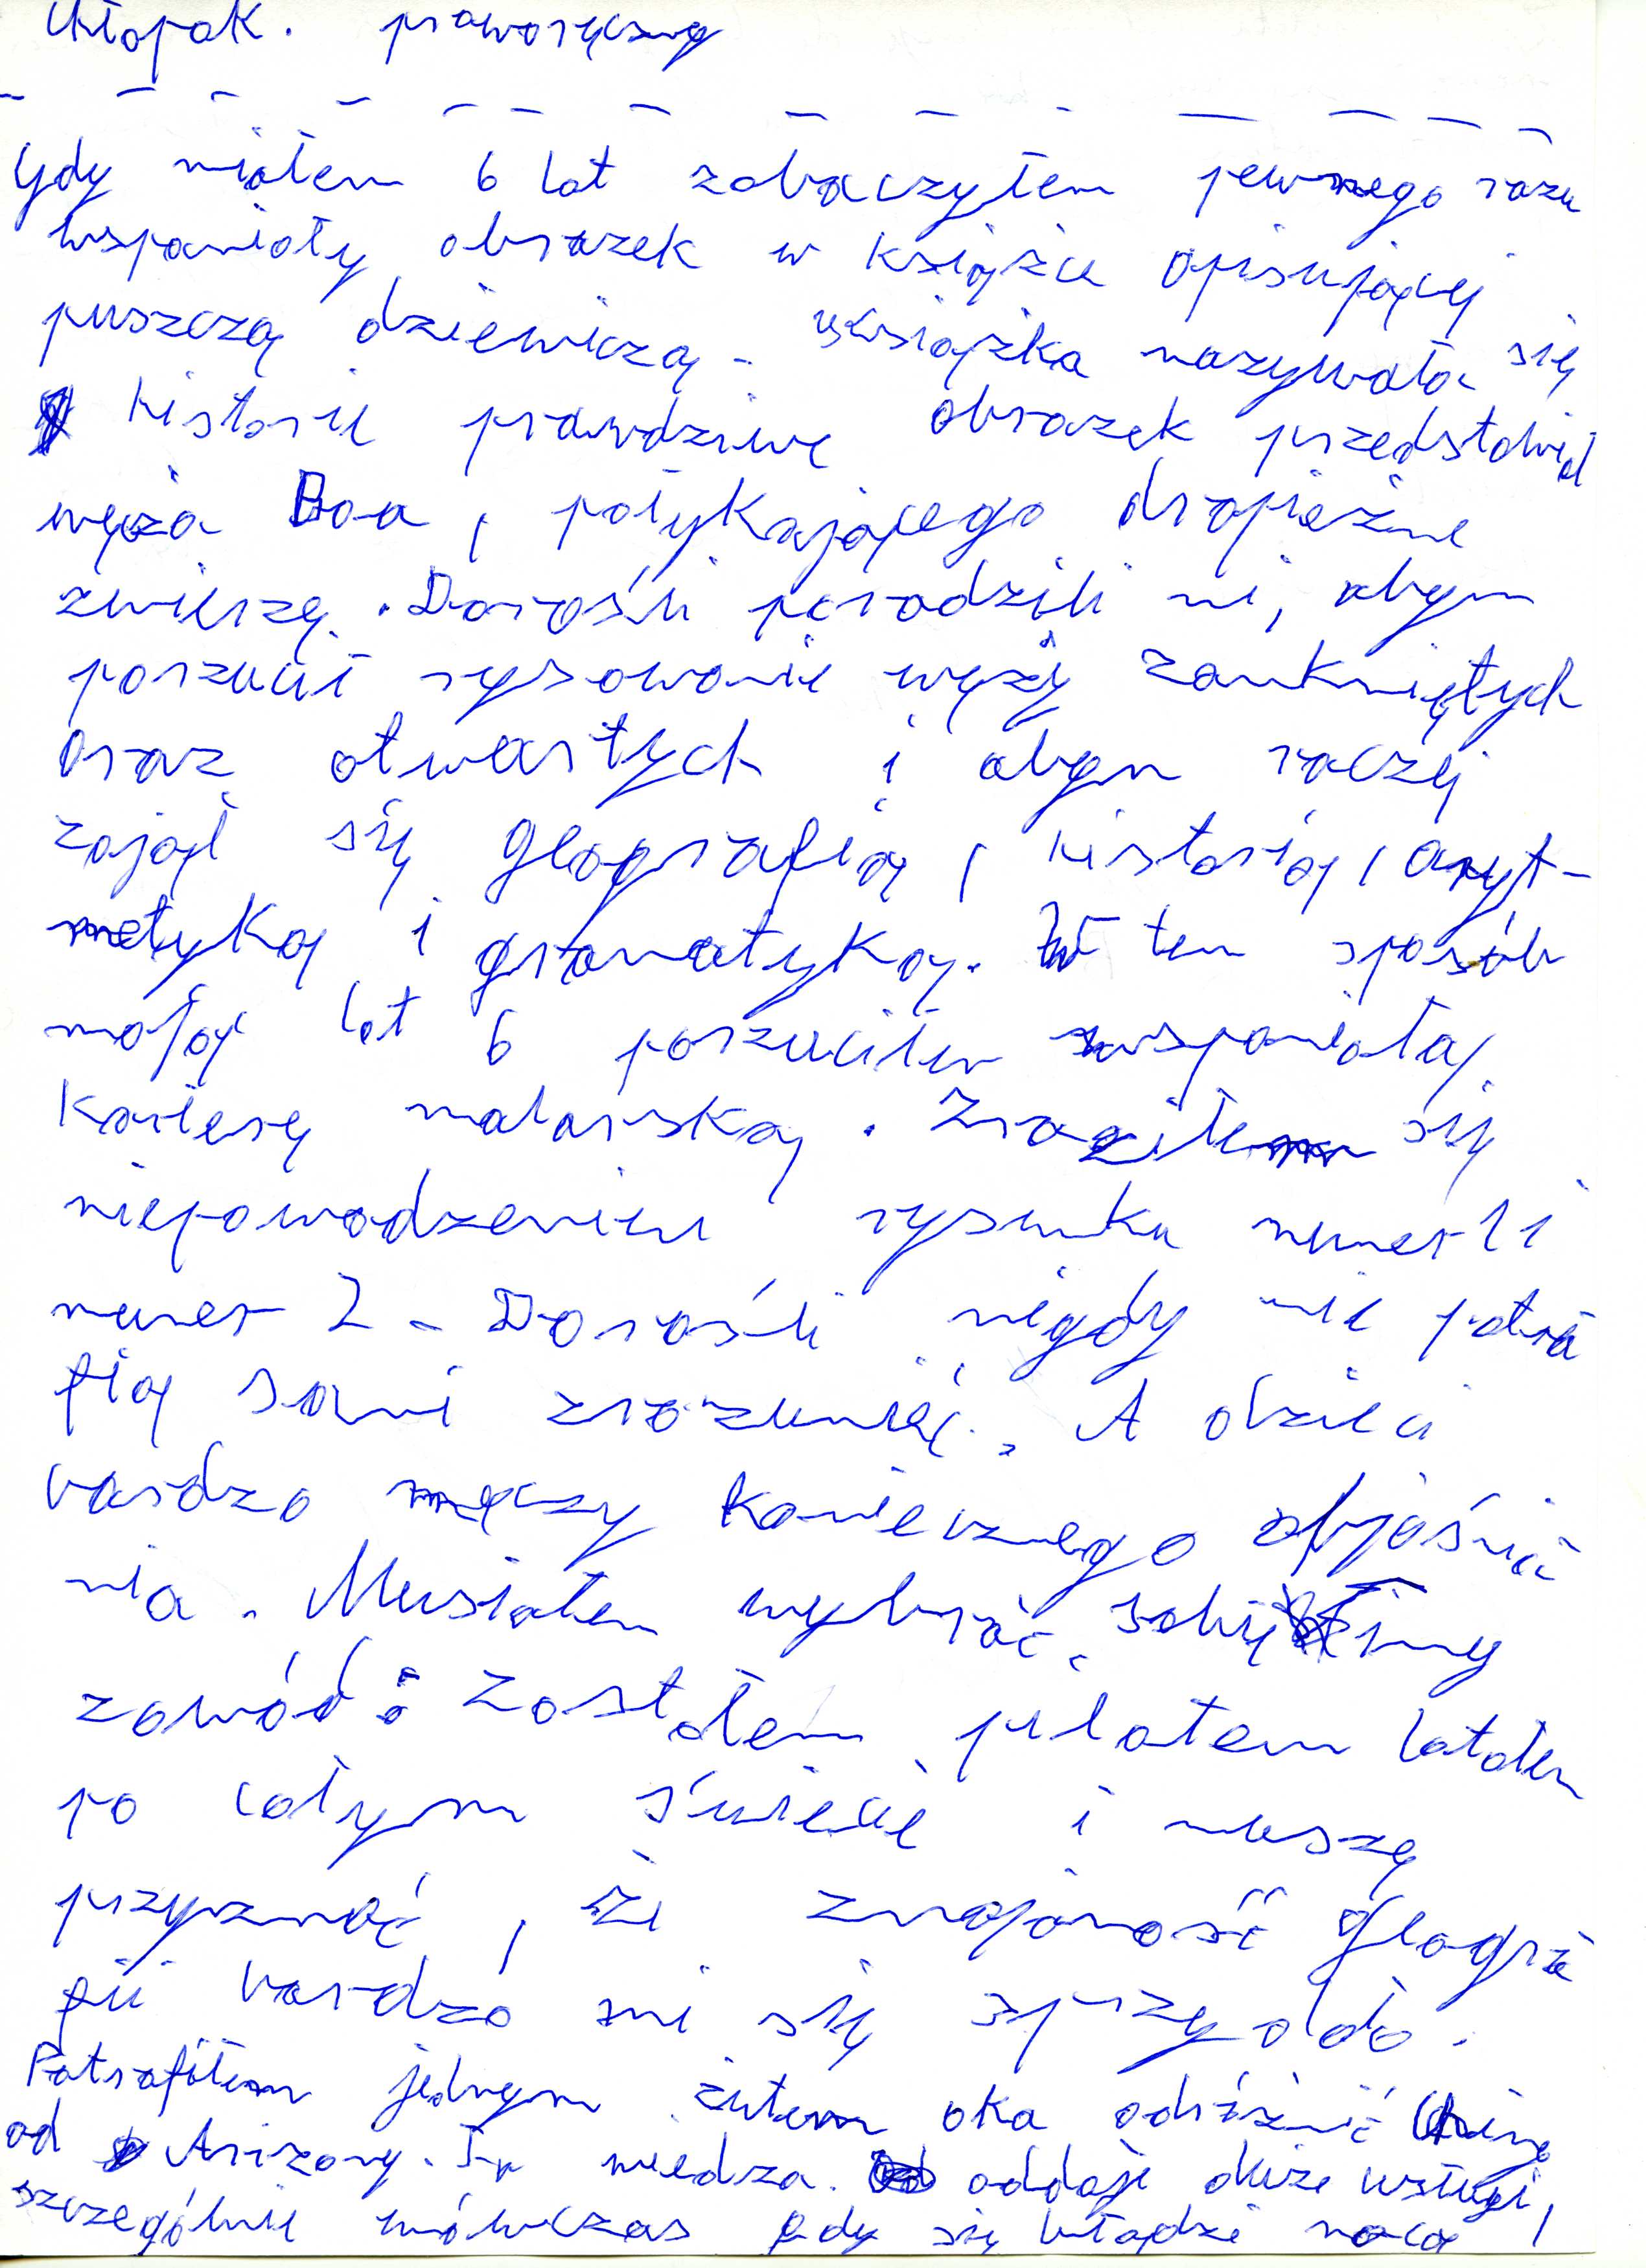 Chłopak. praworęczny
Gdy miałem 6 lat zobaczyłem pewnego razu
wspaniały obrazek w książce opisującej
puszczą dziewiczą. książka nazywała się
Historie prawdziwe obrazek przedstawiał
węża Boa, połykającego drapieżne
zwierzę. Dorośli poradzili mi, abym
porzucił rysowanie węży zamkniętych
oraz otwartych i abym raczej
zajął się geografią, historią, aryt-
metyką i gramatyką. W ten sposób
mając lat 6 porzuciłem wspaniałą
karierę malarską. Zraziłem się
niepowodzeniem rysunku numer 1 i
numer 2. Dorośli nigdy nie potra
fią sami zrozumieć. A dzieci
bardzo męczy koniecznego objaśnia
nia. Musiałem wybrać sobie inny
zawód: Zostałem pilotem latałem
po całym świecie i muszę
przyznać, że znajomość geogra
fii bardzo mi się przydała.
Potrafiłem jednym rzutem oka odróżnić Chinę
od Arizony. Ta wiedza oddaje duże usługi,
szczególnie wówczas gdy się błądzi nocą